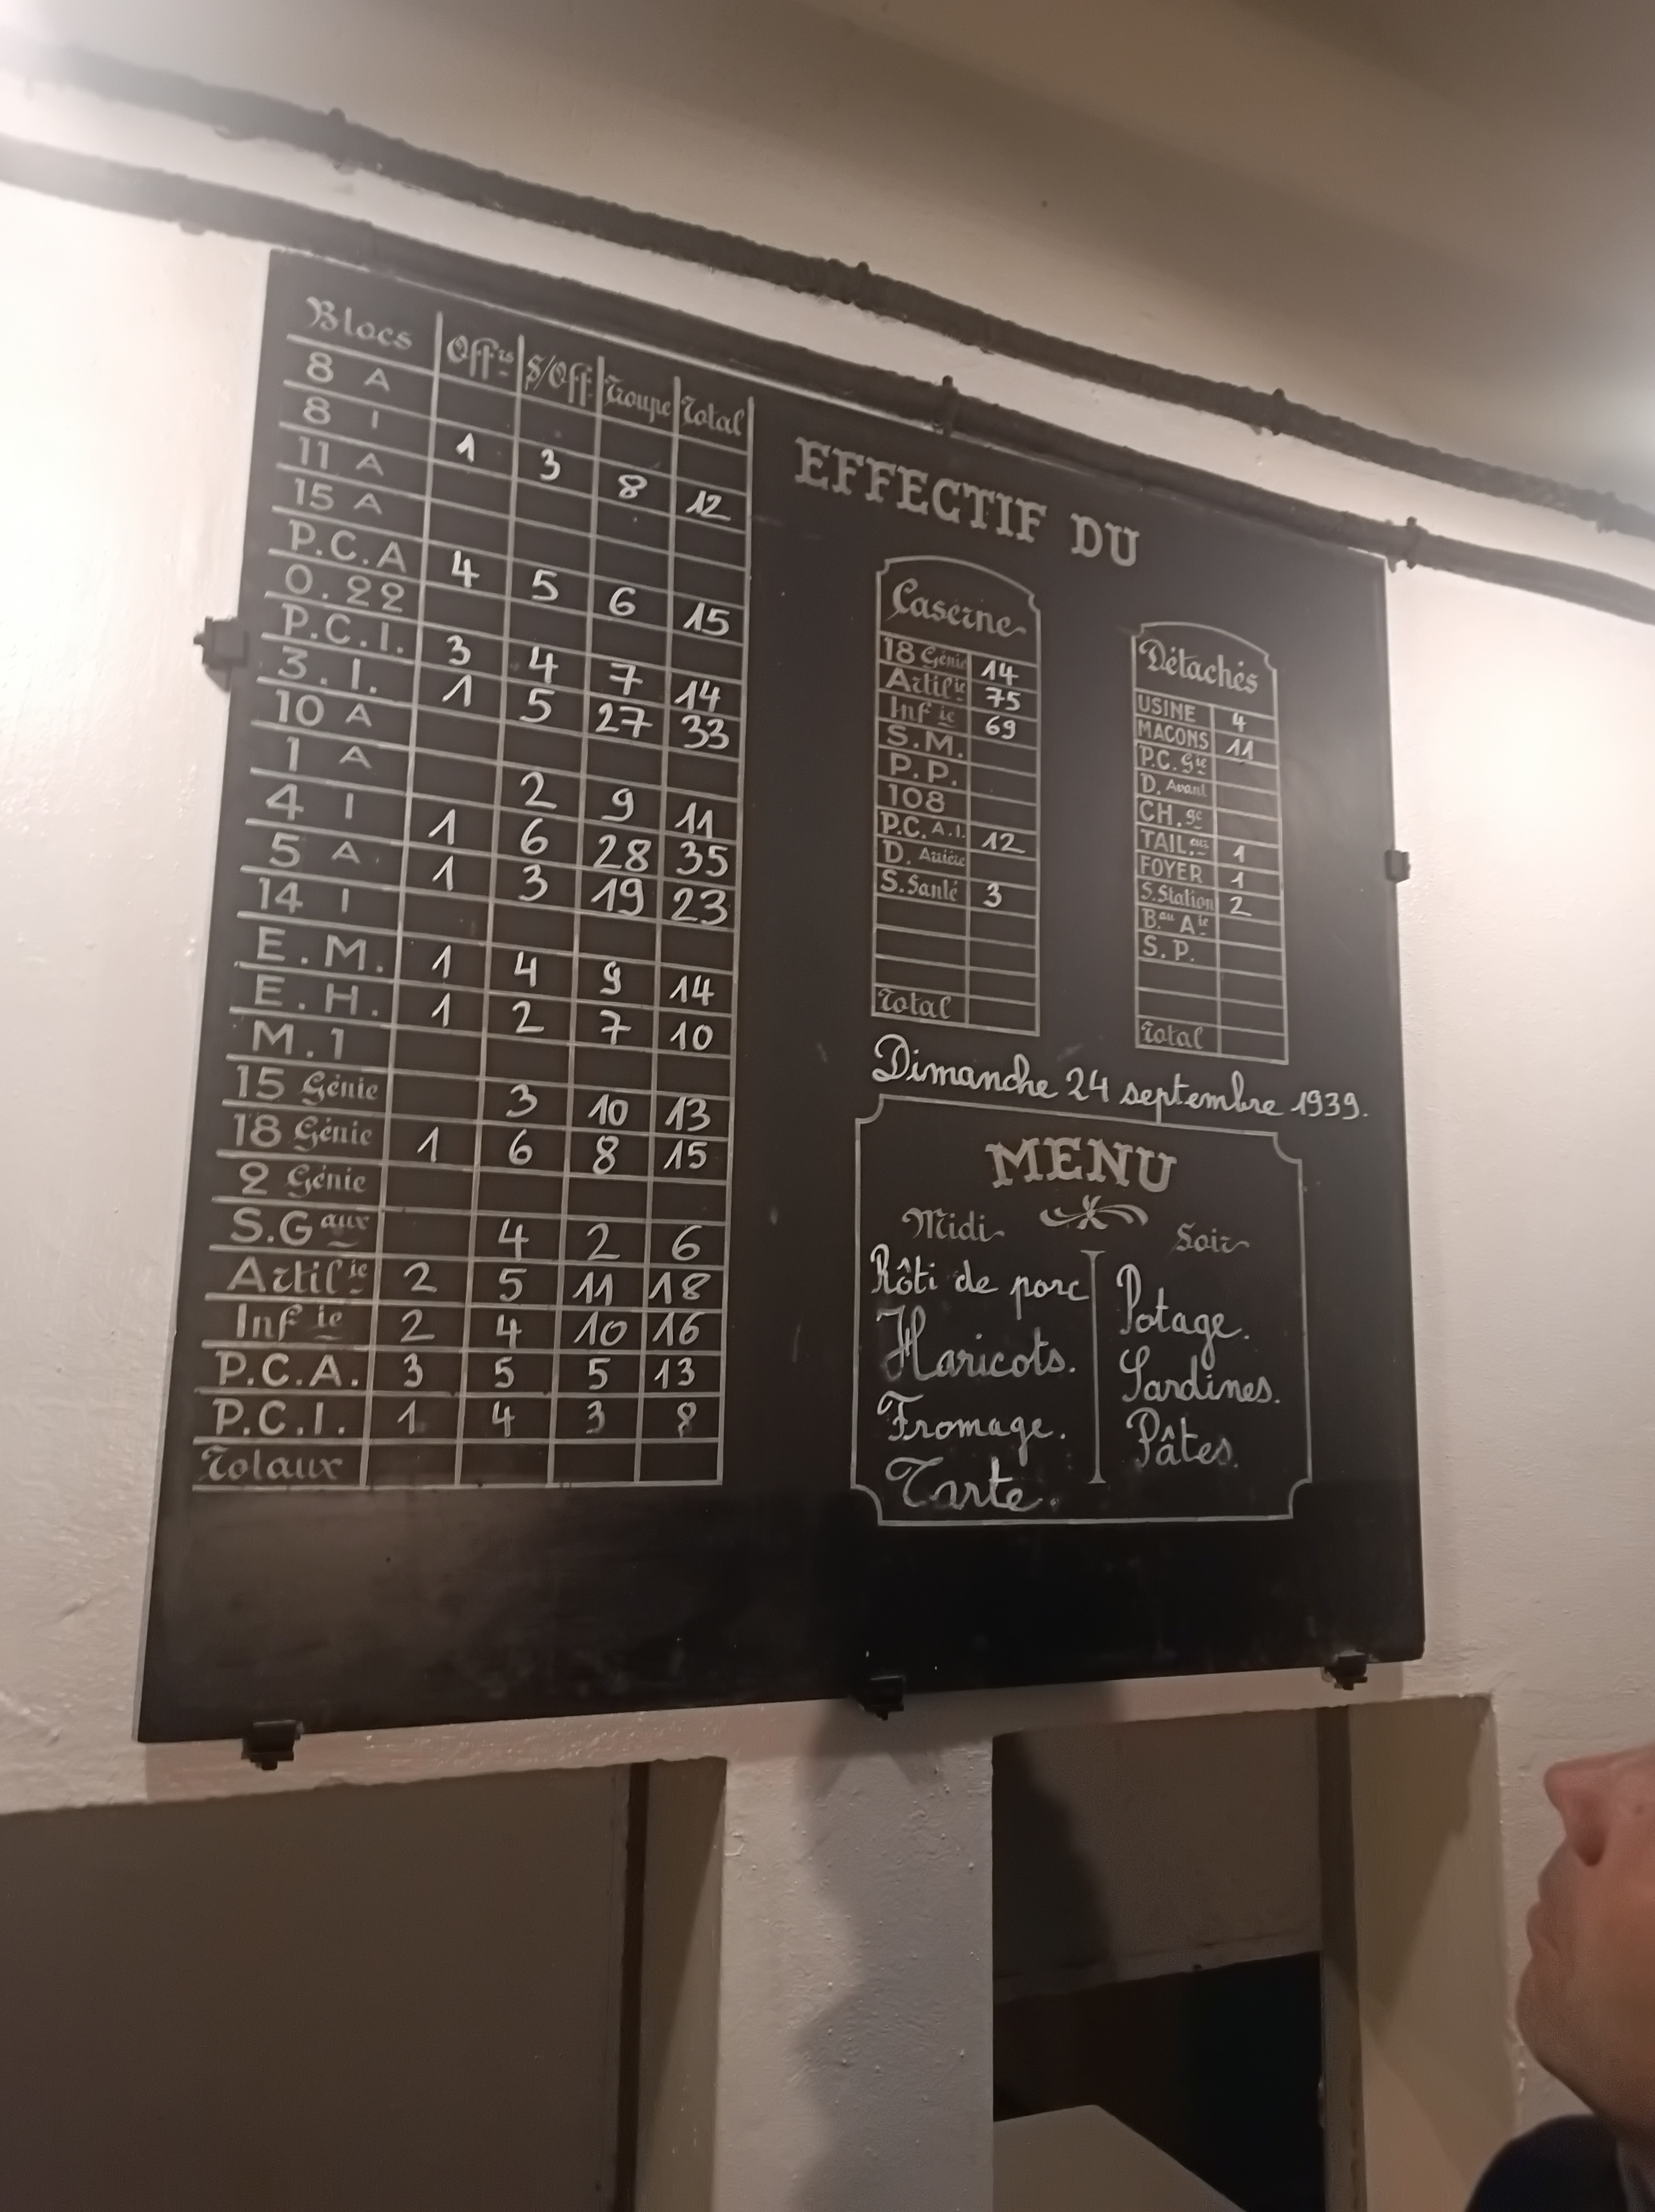 Blocs Off.rs S/Off. Troupe Total
8 A
8 I 1 3 8 12
11 A
15 A
P.C.A 4 5 6 15
O.22
P.C.I. 3 4 7 14
3.I. 1 5 27 33
10 A
1 A 2 9 11
4 I 1 6 28 35
5 A 1 3 19 23
14 I
E.M. 1 4 9 14
E.H. 1 2 7 10
M.1
15 Génie 3 10 13
18 Génie 1 6 8 15
2 Génie
S.Gaux 4 2 6
Artilie 2 5 11 18
Infie 2 4 10 16
P.C.A. 3 5 5 13
P.C.I. 1 4 3 8
Totaux
EFFECTIF DU
Caserne
18 Génie 14
Artilie 75
Infie 69
S.M.
P.P.
108
P.C.A.I. 12
D. Arrière
S.Santé 3
Total
Détachés
USINE 4
MACONS 11
P.C. Gie
D. Avant
CH.ge
TAIL.eurs 1
FOYER 1
S.Station 2
Bau Aie
S.P.
Total
Dimanche 24 septembre 1939.
MENU
Midi
Rôti de porc
Haricots.
Fromage.
Tarte.
Soir
Potage.
Sardines.
Pâtes.